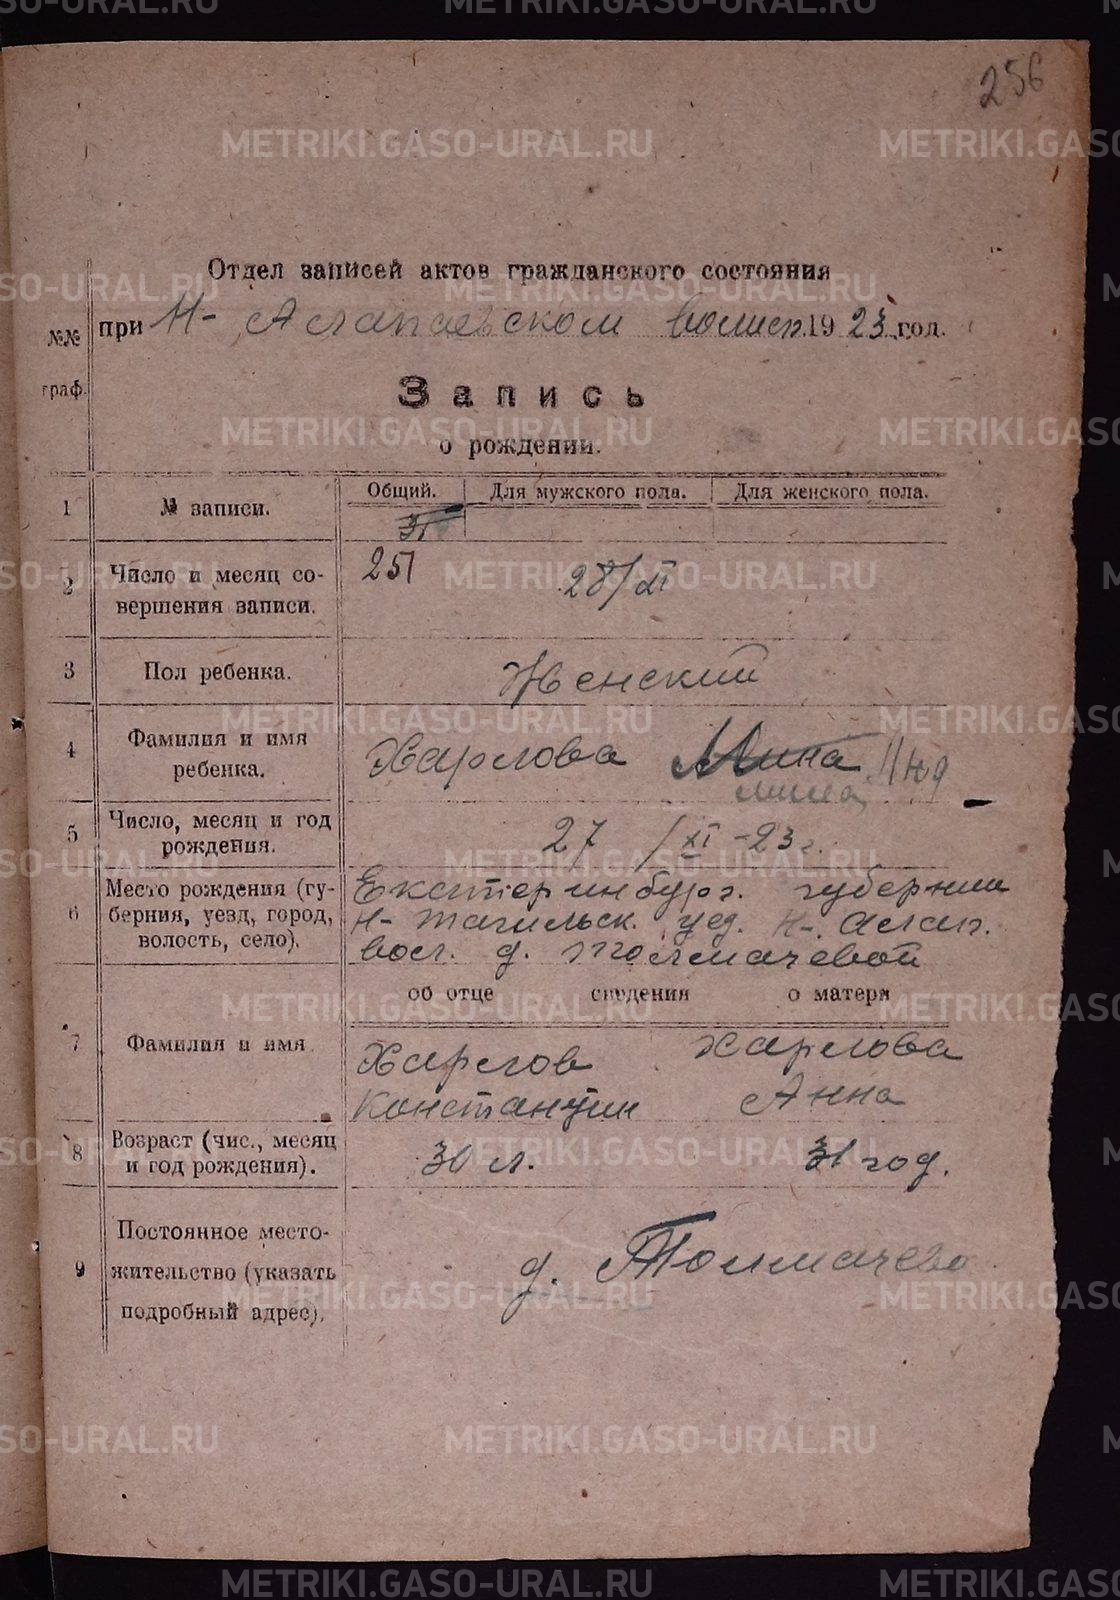 256
Отдел записей актов гражданского состояния
при Н- Алапаевском волисп. 1923 год.
№№ граф.
Запись
о рождении.
Общий. Для мужского пола. Для женского пола.
1 № записи.
251
2 Число и месяц со-
вершения записи.
28/XI
3 Пол ребенка. Женский
4 Фамилия и имя
ребенка.
Харлова Нина
5 Число, месяц и год
рождения.
27/XI -23 г.
6 Место рождения (гу-
берния, уезд, город,
волость, село).
Екатеринбург. губернии
Н- Тагильск. уед. Н-. Алап.
вол. д. Толмачевой
об отце сведения о матери
7 Фамилия и имя
Харлов Харлова
Константин Анна
8 Возраст (чис., месяц
и год рождения).
30 л. 31 год.
9 Постоянное место-
жительство (указать
подробный адрес).
д. Толмачево
METRIKI.GASO-URAL.RU